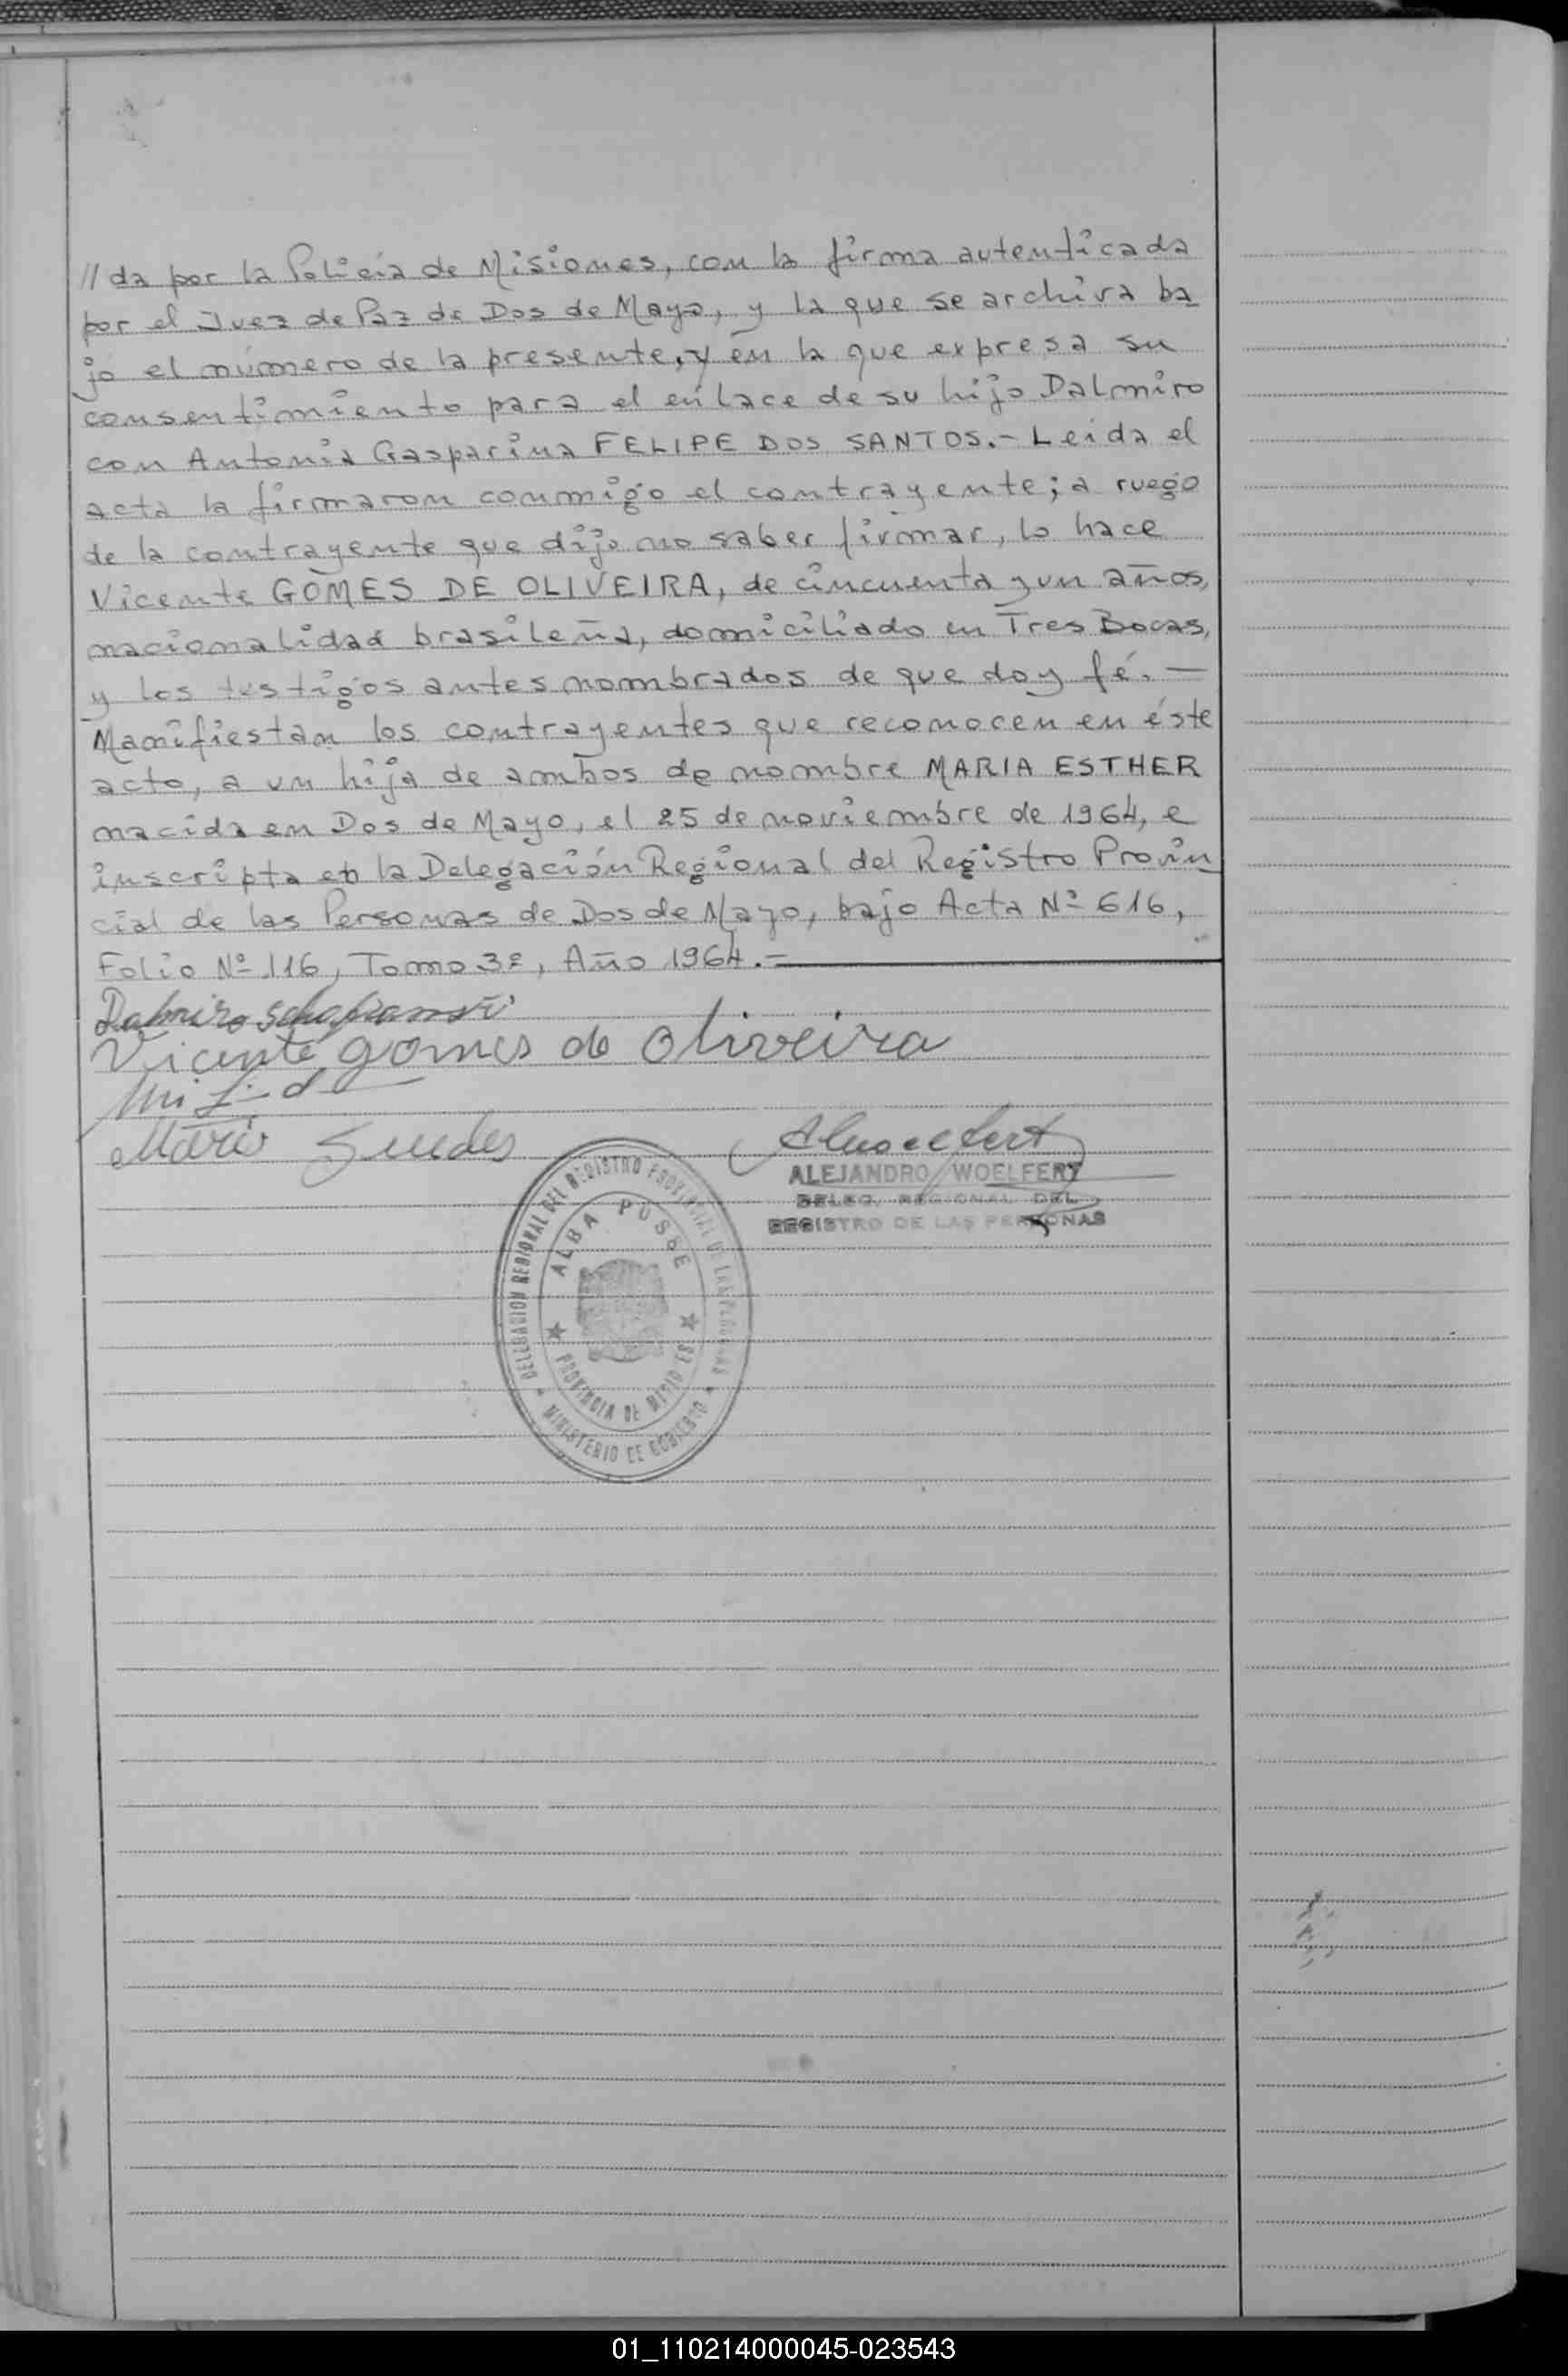 // da por la Policía de Misiones, con la firma autenticada
por el Juez de Paz de Dos de Mayo, y la que se archiva ba
jo el número de la presente, y en la que expresa su
consentimiento para el enlace de su hijo Dalmiro
con Antonia Gasparina FELIPE DOS SANTOS.- Leida el
acta la firmaron conmigo el contrayente; a ruego
de la contrayente que dijo no saber firmar, lo hace
Vicente GOMES DE OLIVEIRA, de cincuenta y un años,
nacionalidad brasileña, domiciliado en Tres Bocas,
y los testigos antes nombrados de que doy fé. —
Manifiestan los contrayentes que reconocen en éste
acto, a un hija de ambos de nombre MARIA ESTHER
nacida en Dos de Mayo, el 25 de noviembre de 1964, e
inscripta en la Delegación Regional del Registro Provin
cial de las Personas de Dos de Mayo, bajo Acta Nº 616,
Folio Nº 116, Tomo 3º, Año 1964.-
Dalmiro
Vicente gomes de oliveira
Mario
ALEJANDRO WOELFERT
DELEG. REGIONAL DEL
REGISTRO DE LAS PERSONAS
DELEGACION REGIONAL DEL REGISTRO PROVINCIAL DE LAS PERSONAS
ALBA POSSE
PROVINCIA DE MISIONES
MINISTERIO DE GOBIERNO
01_110214000045-023543